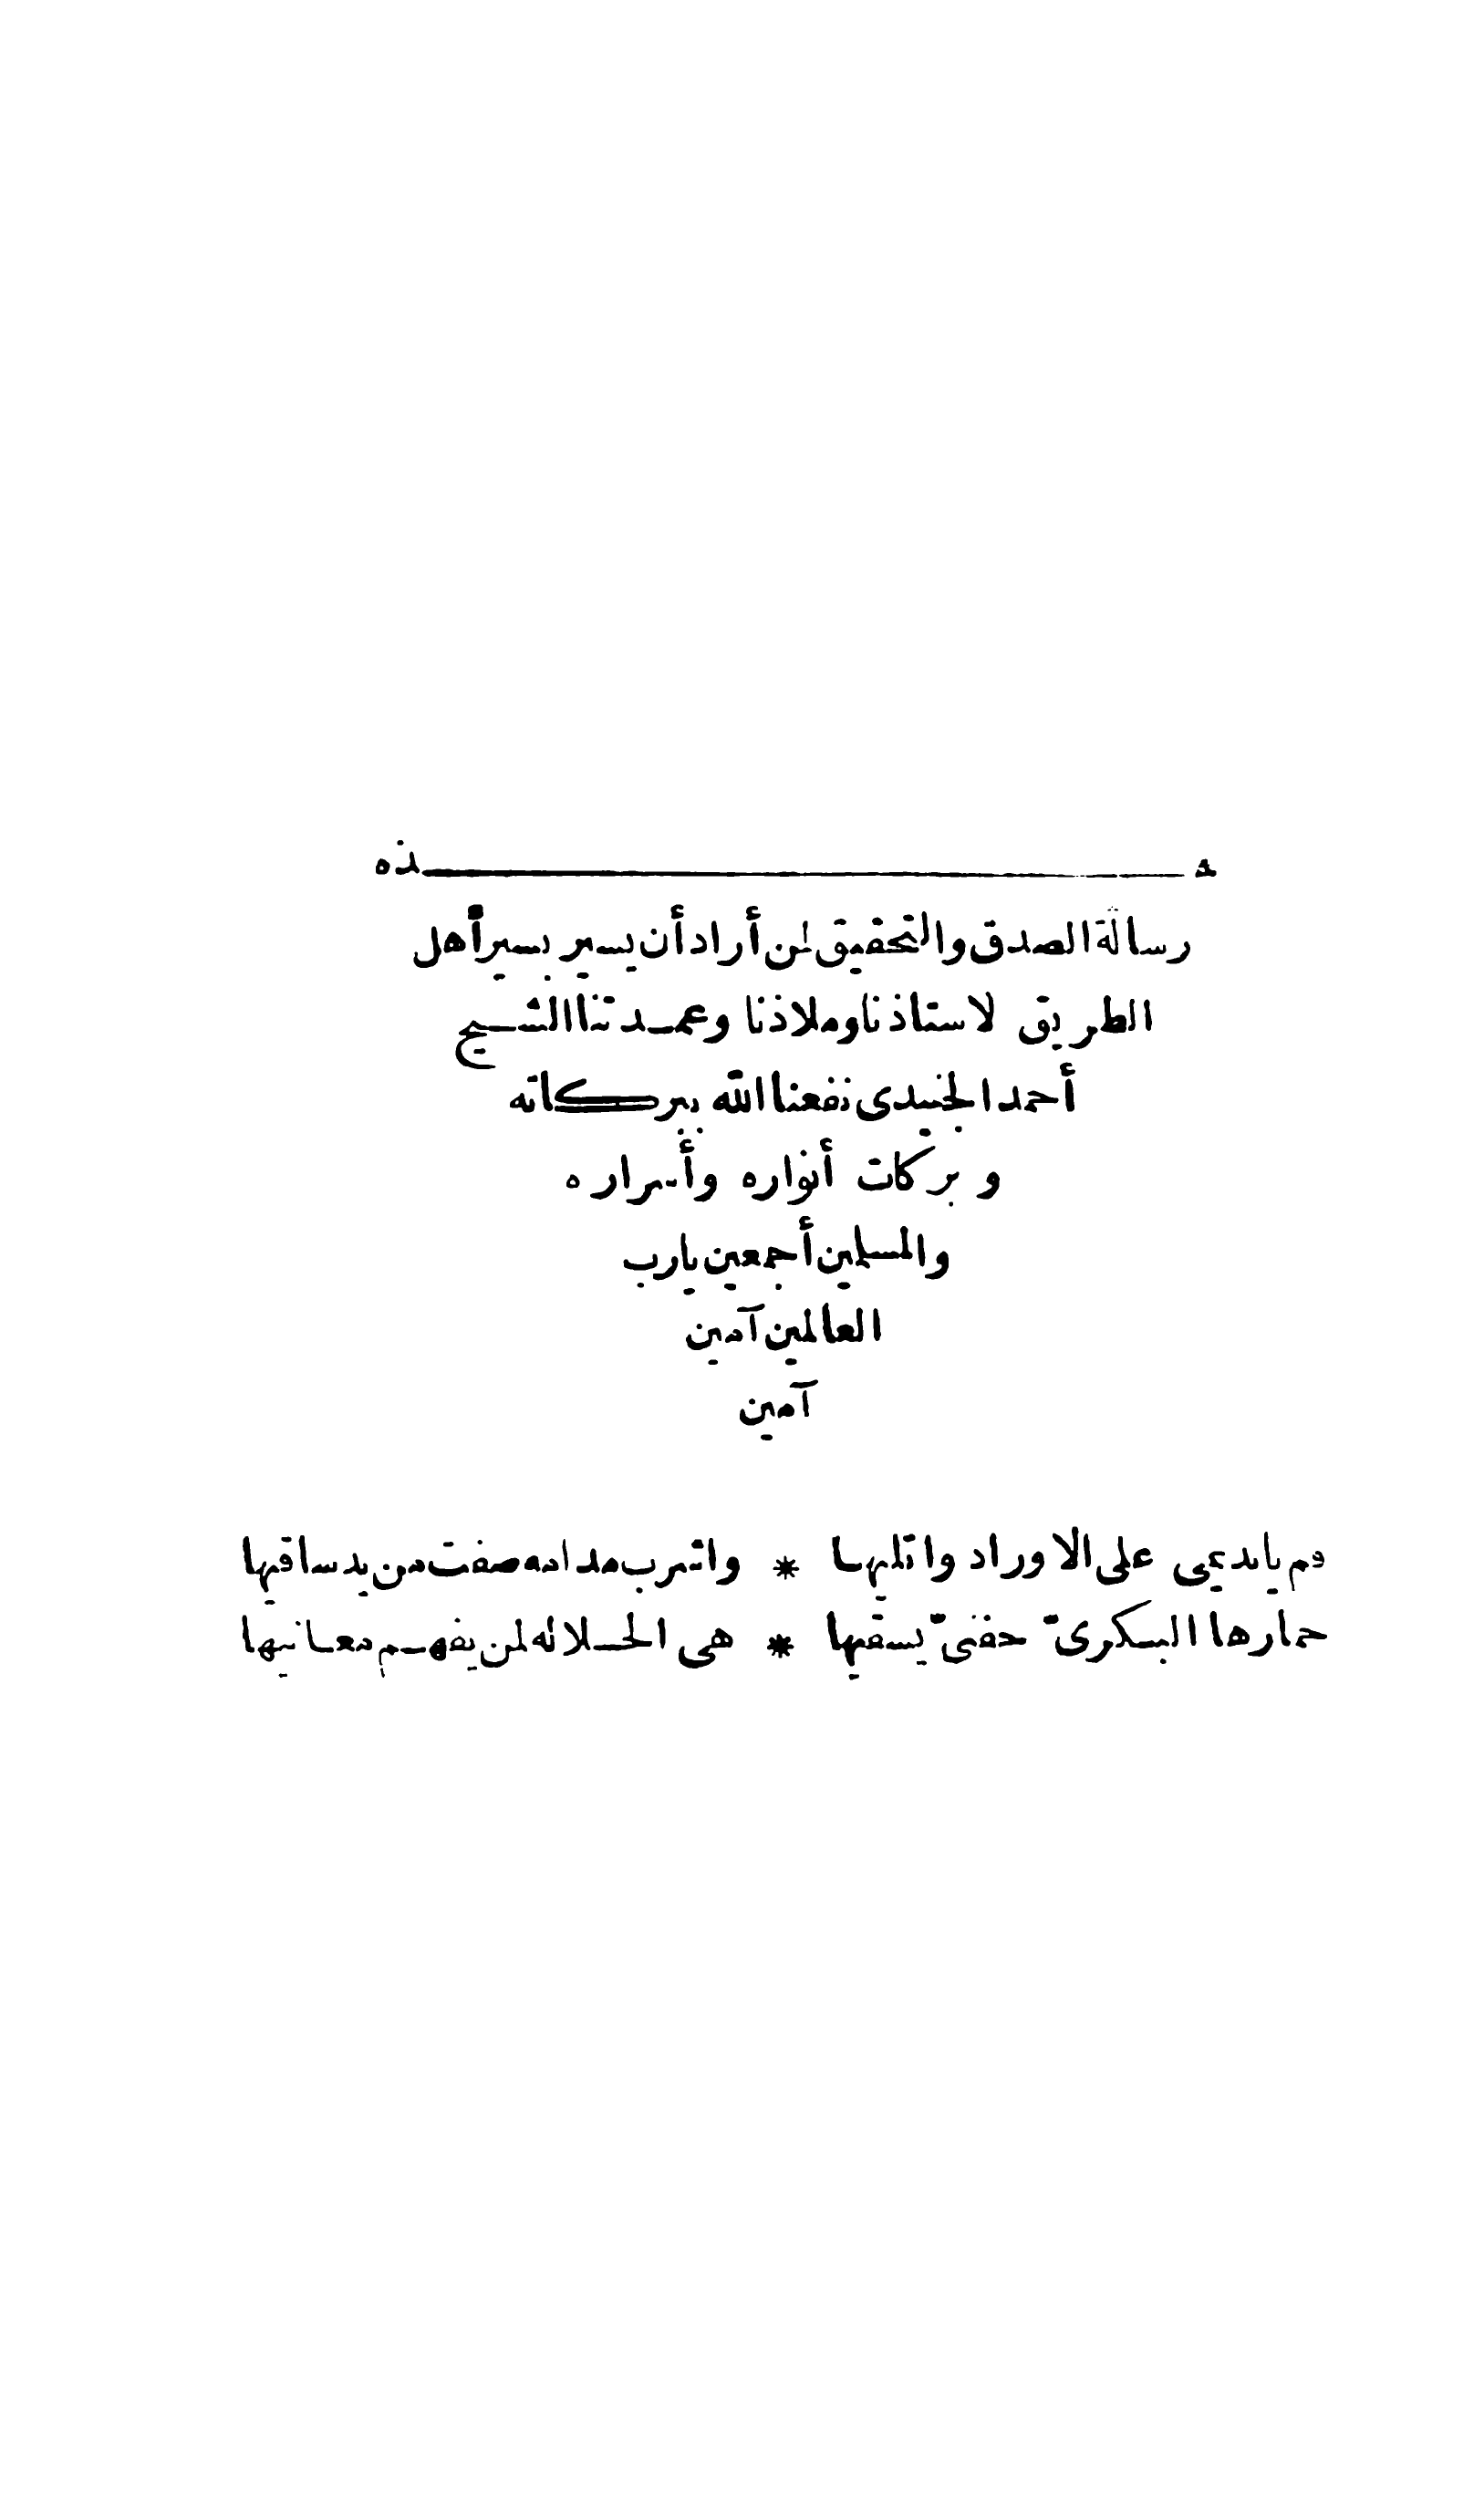 هذه
رسالة الصدق والتحقيق لمن أراد أن يسير بسير أهل
الطريق لاستاذنا وملاذنا وعمدتنا الشيخ
أحمد الجنيدى نفعنا الله ببركاته
وبركات أنواره وأسراره
والمسلمين أجمعين يارب
العالمين آمين
آمين
قم ياندعى على الاوراد واتلها * واشرب مدامه صفت من يد ساقيها
خمارها البكرىّ حفنىّ يسقيها * هى الحلاله لمن يفهم معانيها